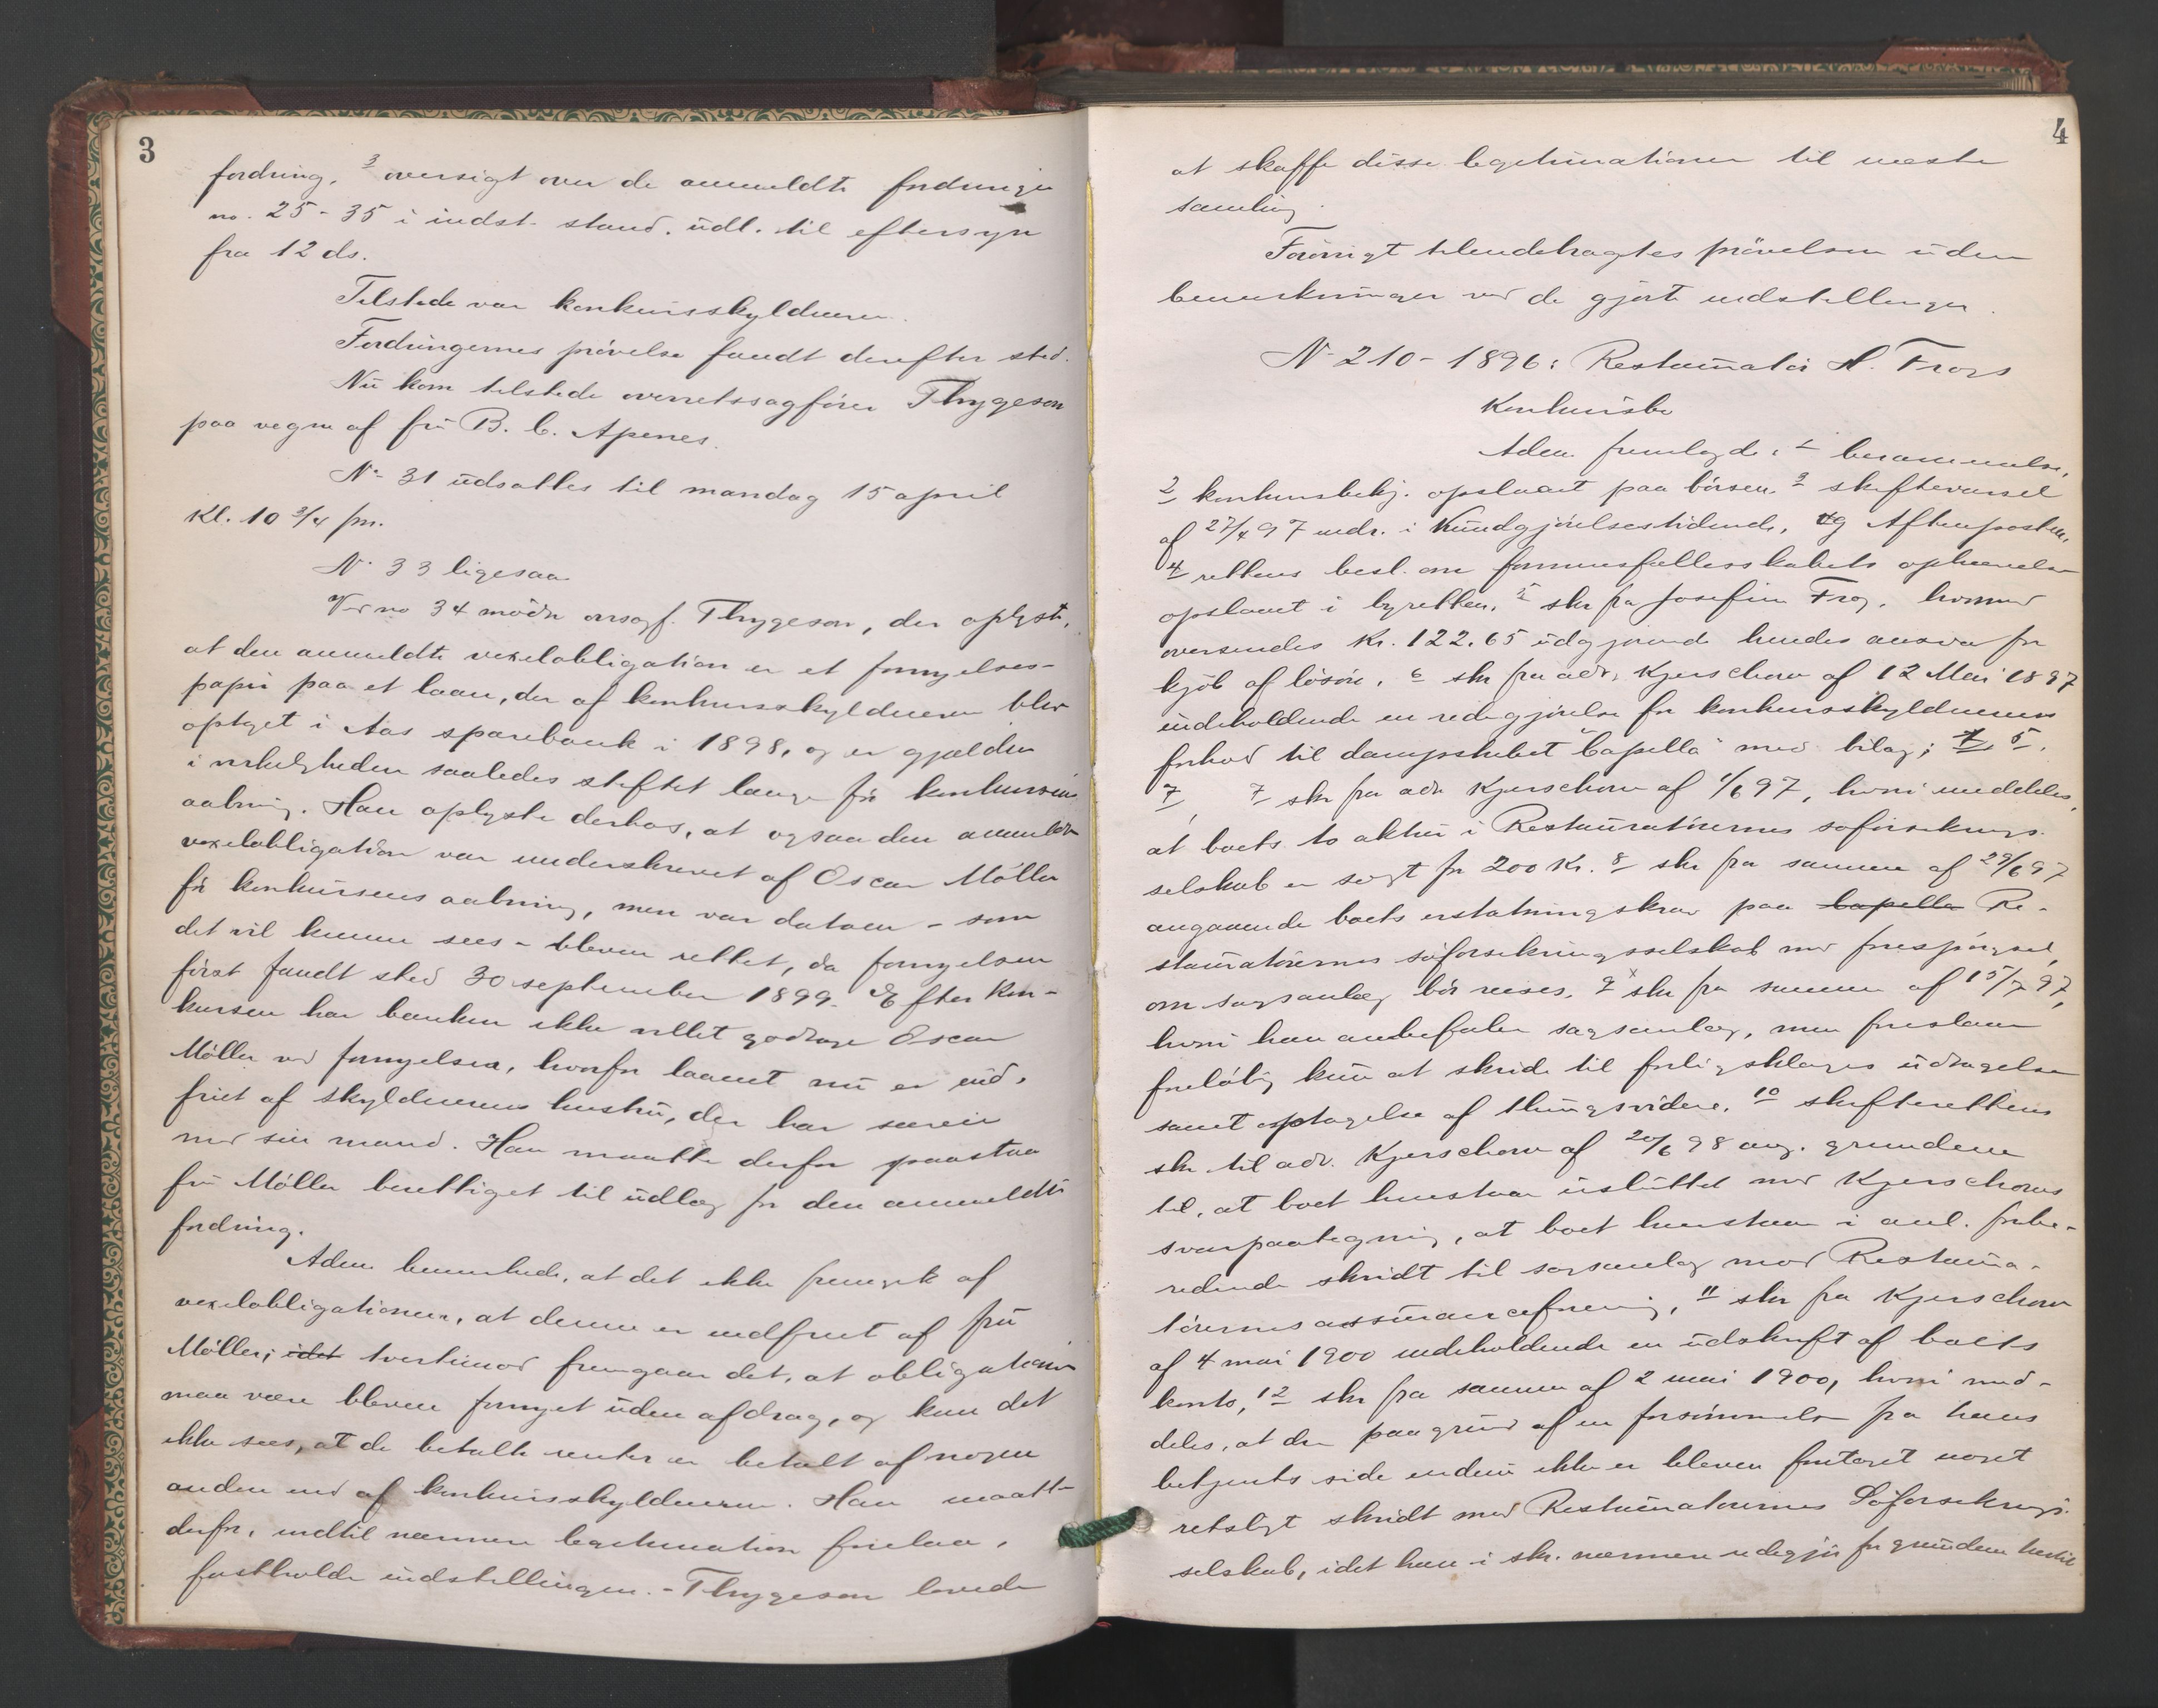 3
fordring, 3 oversigt over de anmeldte fordringer
no. 25-35 i indst. stand. udl. til eftersyn
fra 12 ds.
Tilstede var konkursskyldneren.
Fordringernes prövelse fandt derefter sted.
Nu kom tilstede overretssagförer Thygeson
paa vegne af fru B. C. Apenes.
No 31 udsattes til mandag 15 april
Kl. 10 3/4 fm.
No 33 ligesaa
Ved no 34 mödte orsagf. Thygeson, der oplyste,
at den anmeldte vexelobligation er et fornyelses-
papir paa et laan, der af konkursskyldneren blev
optaget i Aas sparebank i 1898, og er gjælden
i virkeligheden saaledes stiftet længe för konkursens
aabning. Han oplyste derhos, at ogsaa den anmeldte
vexelobligation var underskrevet af Oscar Möller
för konkursens aabning, men var datoen - som
det vil kunne sees - bleven rettet, da fornyelsen
först fandt sted 30 september 1899. Efter kon-
kursen har banken ikke villet godtage Oscar
Möller ved fornyelsen, hvorfor laanet nu er ind-
friet af skyldnerens hustru, der har særeie
med sin mand. Han maatte derfor paastaa
fru Möller berettiget til udlæg for den anmeldte
fordring.
Adm. bemerkede, at det ikke fremgik af
vexelobligationen, at denne er indfriet af fru
Möller; idet tvertimod fremgaar det, at obligationen
maa være bleven fornyet uden afdrag, og kan det
ikke sees, at de betalte renter er betalt af nogen
anden end af konkursskyldneren. Han maatte
derfor, indtil nærmere legitimation forelaa,
fastholde indstillingen. - Thygeson lovede
4
at skaffe disse legitimationer til næste
samling.
Forövrigt tilendebragtes prövelsen uden
bemerkninger ved de gjorte indstillinger.
No 210 - 1896: Restauratör H. Frogs
Konkursbo
Adm. fremlagde: 1 berammelse,
2 konkursbekj. opslaaet paa börsen, 3 skiftevarsel
af 27/4 97 indr. i Kundgjörelsestidende, og Aftenposten,
4 rettens besl. om formuesfællesskabets ophævelse
opslaaet i byretten, 5 skr fra Josefine Frog, hvormed
oversendes Kr. 122.65 udgjörende hendes ansvar for
kjöb af lösöre, 6 skr fra adv. Kjerschow af 12 Mai 1897
indeholdende en redegjörelse for konkursskyldnerens
forhold til dampskibet "Capella" med bilag; 7. 5.
7, 7 skr fra adv Kjerschow af 1/6 97, hvori meddeles,
at boets to aktier i Restauratörernes söforsikrings-
selskab er solgt for 200 Kr. 8 skr fra samme af 29/6 97
angaaende boets erstatningskrav paa Capella Re-
stauratörernes söforsikringsselskab med forespörgsel,
om sagsanlæg bör reises, 9 skr fra samme af 15/7 97,
hvori han anbefaler sagsanlæg, men foreslaar
foreløbig kun at skride til forligsklages udtagelse
samt optagelse af thingsvidne, 10 skifterettens
skr til adv. Kjerschow af 20/6 98 ang. grundene
til, at boet henstaar usluttet med Kjerschows
svarpaategning, at boet henstaar i anl. forbe-
redende skridt til sagsanlæg mod Restaura-
törernes assuranceforening, 11 skr fra Kjerschow
af 4 mai 1900 indeholdende en udskrift af boets
konto, 12 skr fra samme af 2 mai 1900, hvori med-
deles, at der paa grund af en forsömmelse fra hans
betjents side endnu ikke er bleven foretaget noget
retsligt skridt mod Restauratörernes Söforsikrings-
selskab, idet han i skr. nærmere redegjör for grundene hertil